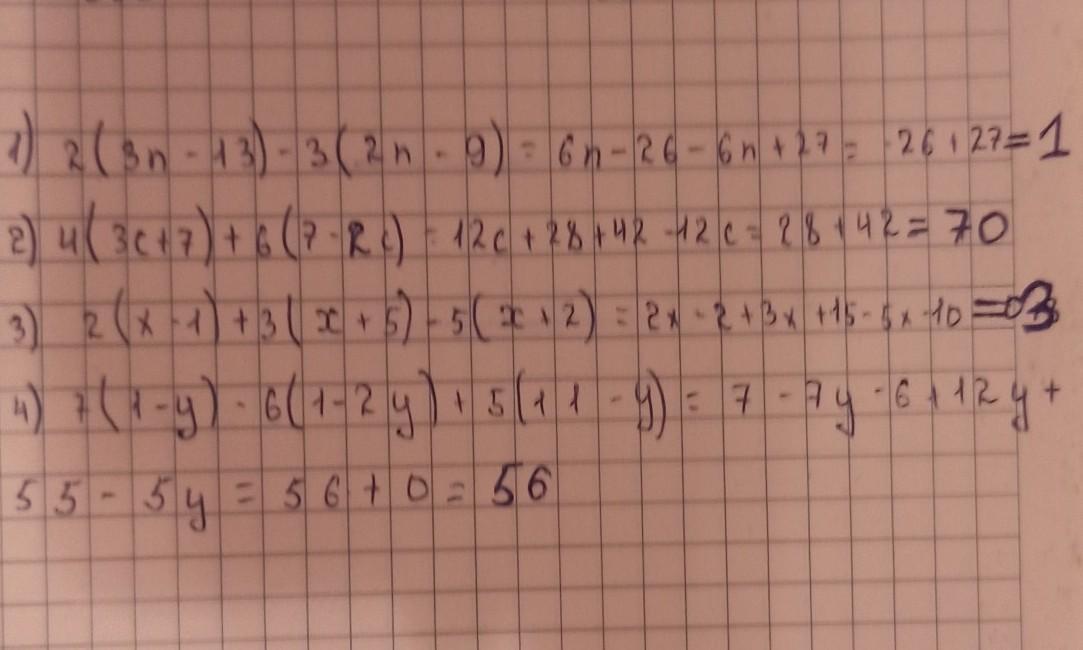 1) 2(3n - 13) - 3(2n - 9) = 6n - 26 - 6n + 27 = -26 + 27 = 1
2) 4(3c + 7) + 6(7 - 2c) = 12c + 28 + 42 - 12c = 28 + 42 = 70
3) 2(x - 1) + 3(x + 5) - 5(x + 2) = 2x - 2 + 3x + 15 - 5x - 10 = 3
4) 7(1 - y) - 6(1 - 2y) + 5(11 - y) = 7 - 7y - 6 + 12y +
55 - 5y = 56 + 0 = 56